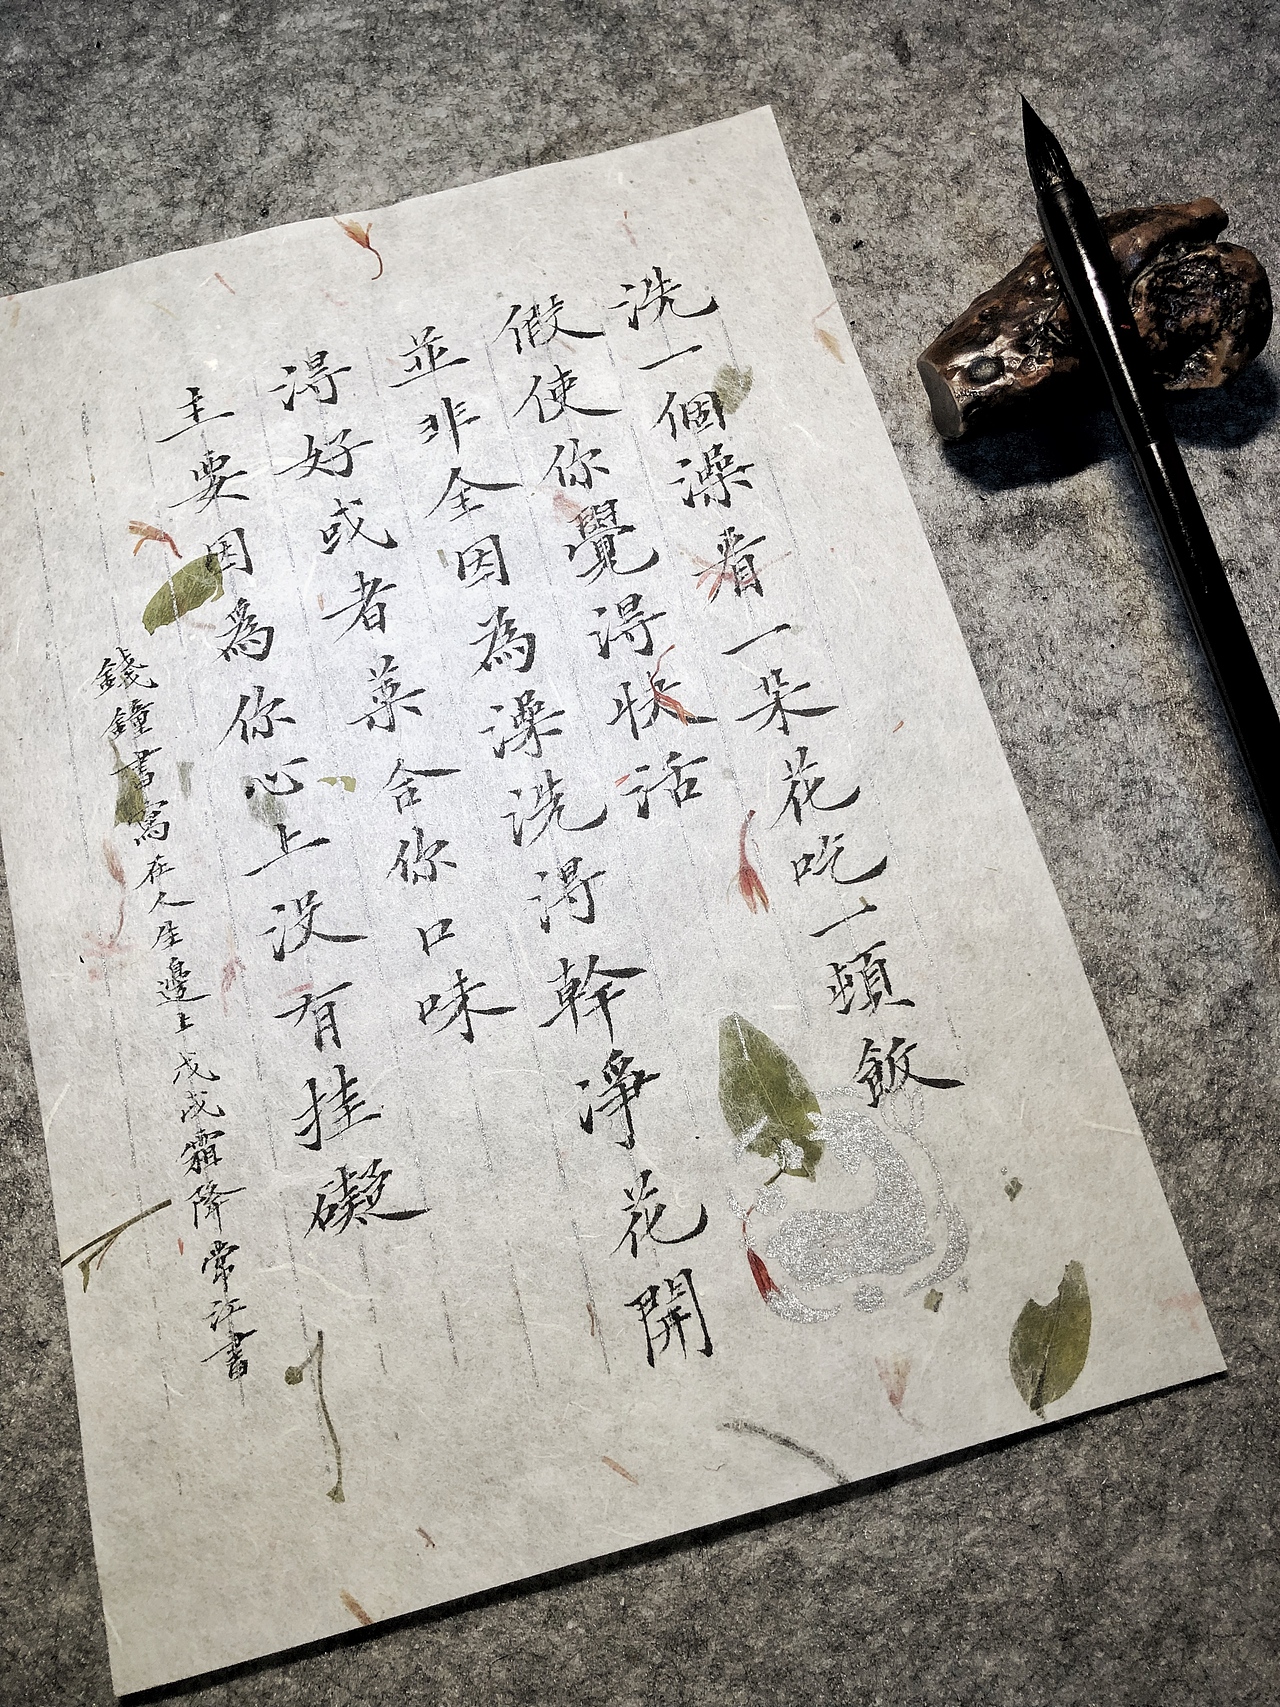 洗一個澡看一朵花吃一頓飯
假使你覺得快活
並非全因為澡洗得幹淨花開
得好或者菜合你口味
主要因為你心上沒有挂礙
錢鐘書寫在人生邊上戊戌霜降常江書